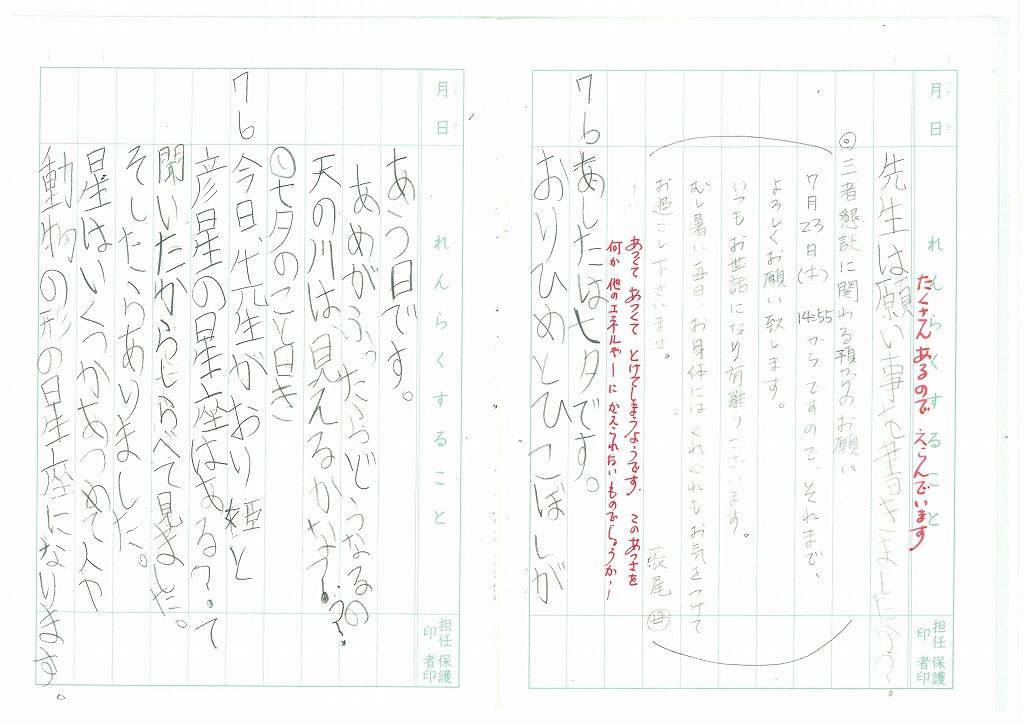 月 日 れんらくすること 担任印 保護者印
先生は願い事を書きましたか？
たくさんあるので えらんでいます
◎三者懇談に関わる預かりのお願い
7月23日(木) 14:55からですので、それまで、
よろしくお願い致します。
いつもお世話になり有難うございます。
むし暑い毎日、お身体にはくれぐれもお気をつけて
お過ごし下さいませ。
長尾 母
あつくて あつくて とけてしまうようです。このあつさを
何か 他のエネルギーに かえられないものでしょうか！
7 6 あしたは七夕です。
おりひめとひこぼしが
月 日 れんらくすること 担任印 保護者印
あう日です。
あめがふったらどうなるの
天の川は、見えるかなぁ？
七夕のこと日き
7 6 今日、先生がおり姫と
彦星の星座はある？て
聞いたからしらべて見ました。
そしたらありました。
星はいくつかあつめて人や
動物の形の星座になります。